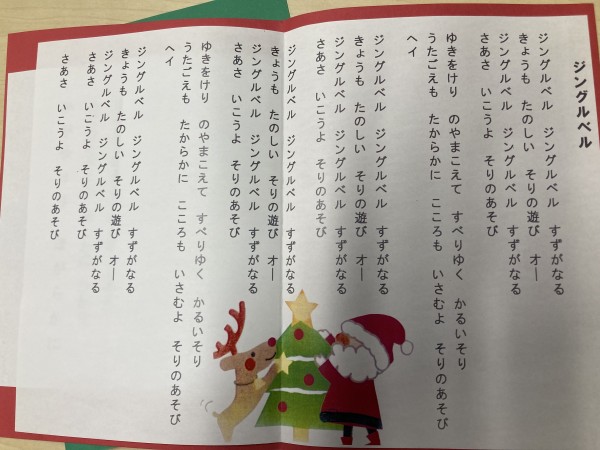 ジングルベル
ジングルベル　ジングルベル　すずがなる
きょうも　たのしい　そりの遊び　オー
ジングルベル　ジングルベル　すずがなる
さあさ　いこうよ　そりのあそび
ゆきをけり　のやまこえて　すべりゆく　かるいそり
うたごえも　たからかに　こころも　いさむよ　そりのあそび
ヘイ
ジングルベル　ジングルベル　すずがなる
きょうも　たのしい　そりの遊び　オー
ジングルベル　ジングルベル　すずがなる
さあさ　いこうよ　そりのあそび
ジングルベル　ジングルベル　すずがなる
きょうも　たのしい　そりの遊び　オー
ジングルベル　ジングルベル　すずがなる
さあさ　いこうよ　そりのあそび
ゆきをけり　のやまこえて　すべりゆく　かるいそり
うたごえも　たからかに　こころも　いさむよ　そりのあそび
ヘイ
ジングルベル　ジングルベル　すずがなる
きょうも　たのしい　そりの遊び　オー
ジングルベル　ジングルベル　すずがなる
さあさ　いこうよ　そりのあそび
さあさ　いこうよ　そりのあそび